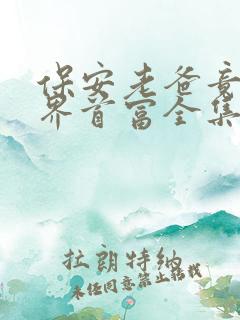 保安老爸竟
界首富全集
拉朗特纳
未经同意禁止转载